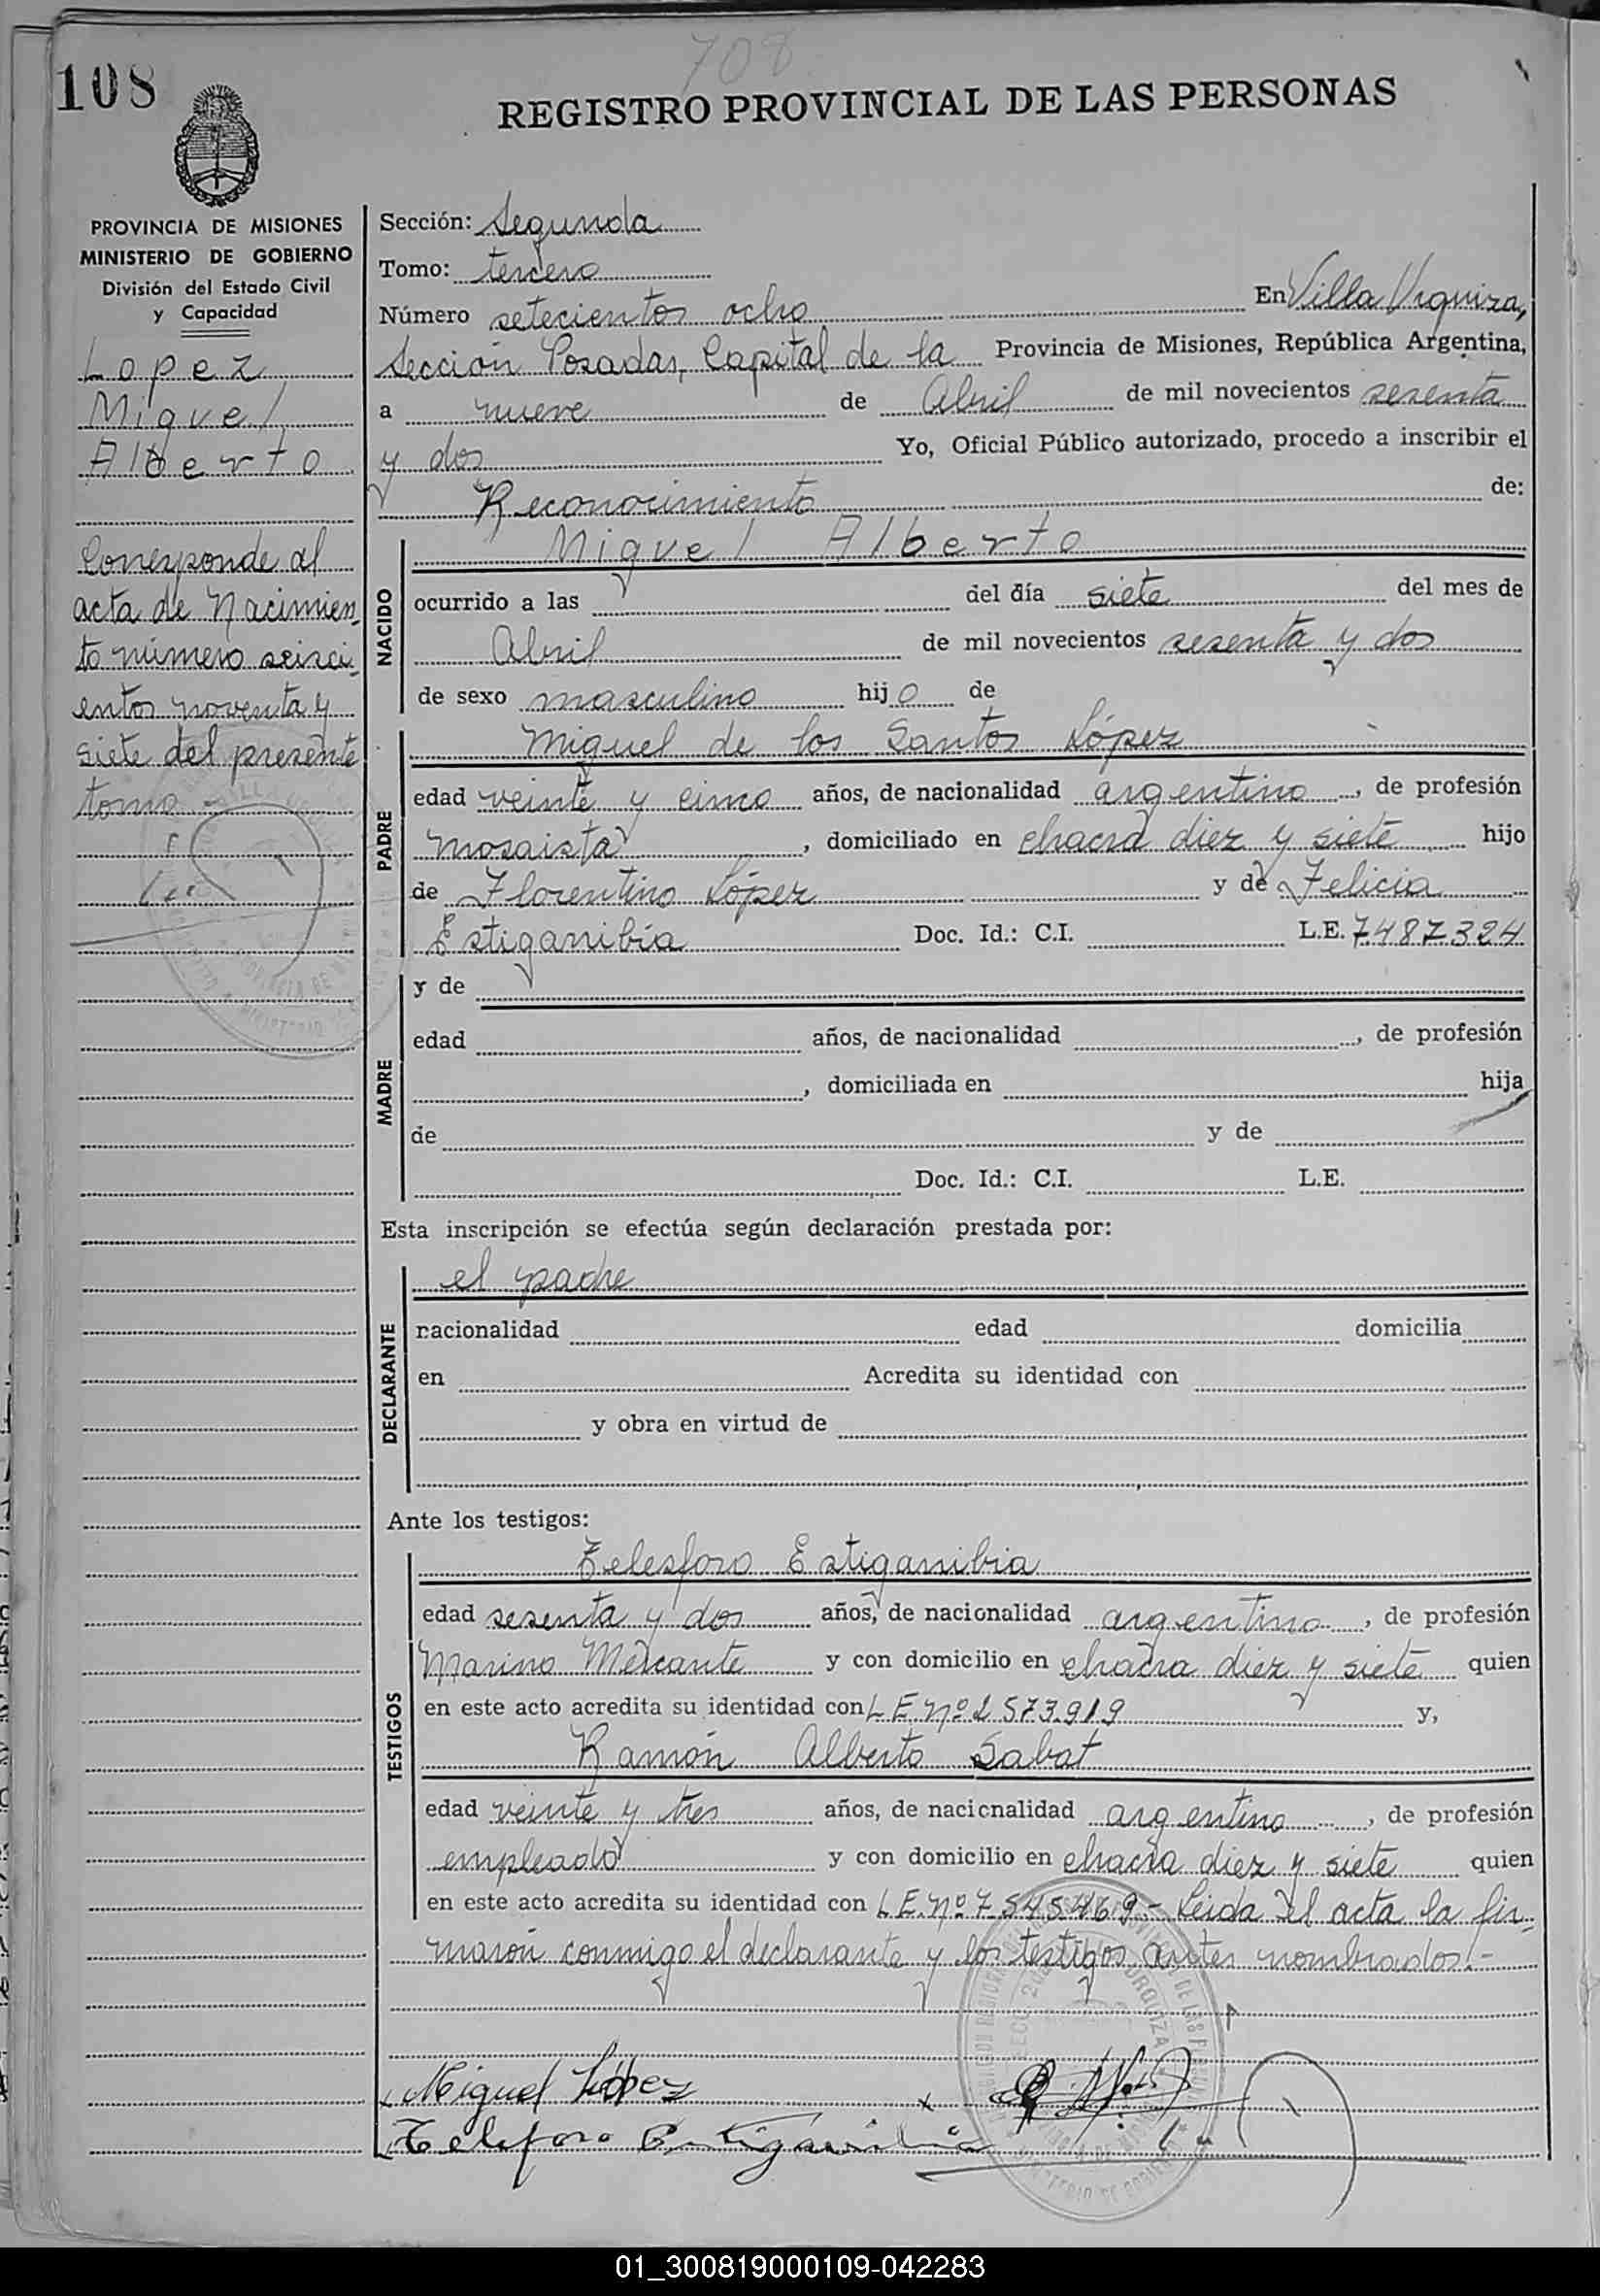 708
108
REGISTRO PROVINCIAL DE LAS PERSONAS
PROVINCIA DE MISIONES
MINISTERIO DE GOBIERNO
División del Estado Civil
y Capacidad
Lopez
Miguel
Alberto
Corresponde al
acta de Nacimien
to número seisci
entos noventa y
siete del presente
tomo
Sección: Segunda
Tomo: tercero
Número setecientos ocho En Villa Urquiza,
Sección Posadas, Capital de la Provincia de Misiones, República Argentina,
a nueve de Abril de mil novecientos sesenta
y dos Yo, Oficial Público autorizado, procedo a inscribir el
Reconocimiento de:
NACIDO
Miguel Alberto
ocurrido a las del día siete del mes de
Abril de mil novecientos sesenta y dos
de sexo masculino hijo de
PADRE
Miguel de los Santos López
edad veinte y cinco años, de nacionalidad argentino, de profesión
mosaista, domiciliado en chacra diez y siete hijo
de Florentino López y de Felicia
Estiganibia Doc. Id.: C.I. L.E. 7.487.324
MADRE
y de
edad años, de nacionalidad , de profesión
, domiciliada en hija
de y de
Doc. Id.: C.I. L.E.
Esta inscripción se efectúa según declaración prestada por:
DECLARANTE
el padre
nacionalidad edad domicilia
en Acredita su identidad con
y obra en virtud de
Ante los testigos:
TESTIGOS
Telesforo Estiganibia
edad sesenta y dos años, de nacionalidad argentino, de profesión
Marino Mercante y con domicilio en chacra diez y siete quien
en este acto acredita su identidad con L E Nº 2.573.919 y,
Ramón Alberto Sabat
edad veinte y tres años, de nacionalidad argentino, de profesión
empleado y con domicilio en chacra diez y siete quien
en este acto acredita su identidad con L.E. Nº 7.545.469.- Leida el acta la fir
maron conmigo el declarante y los testigos antes nombrados.-
Miguel López
Telesforo Estiganibia
01_300819000109-042283